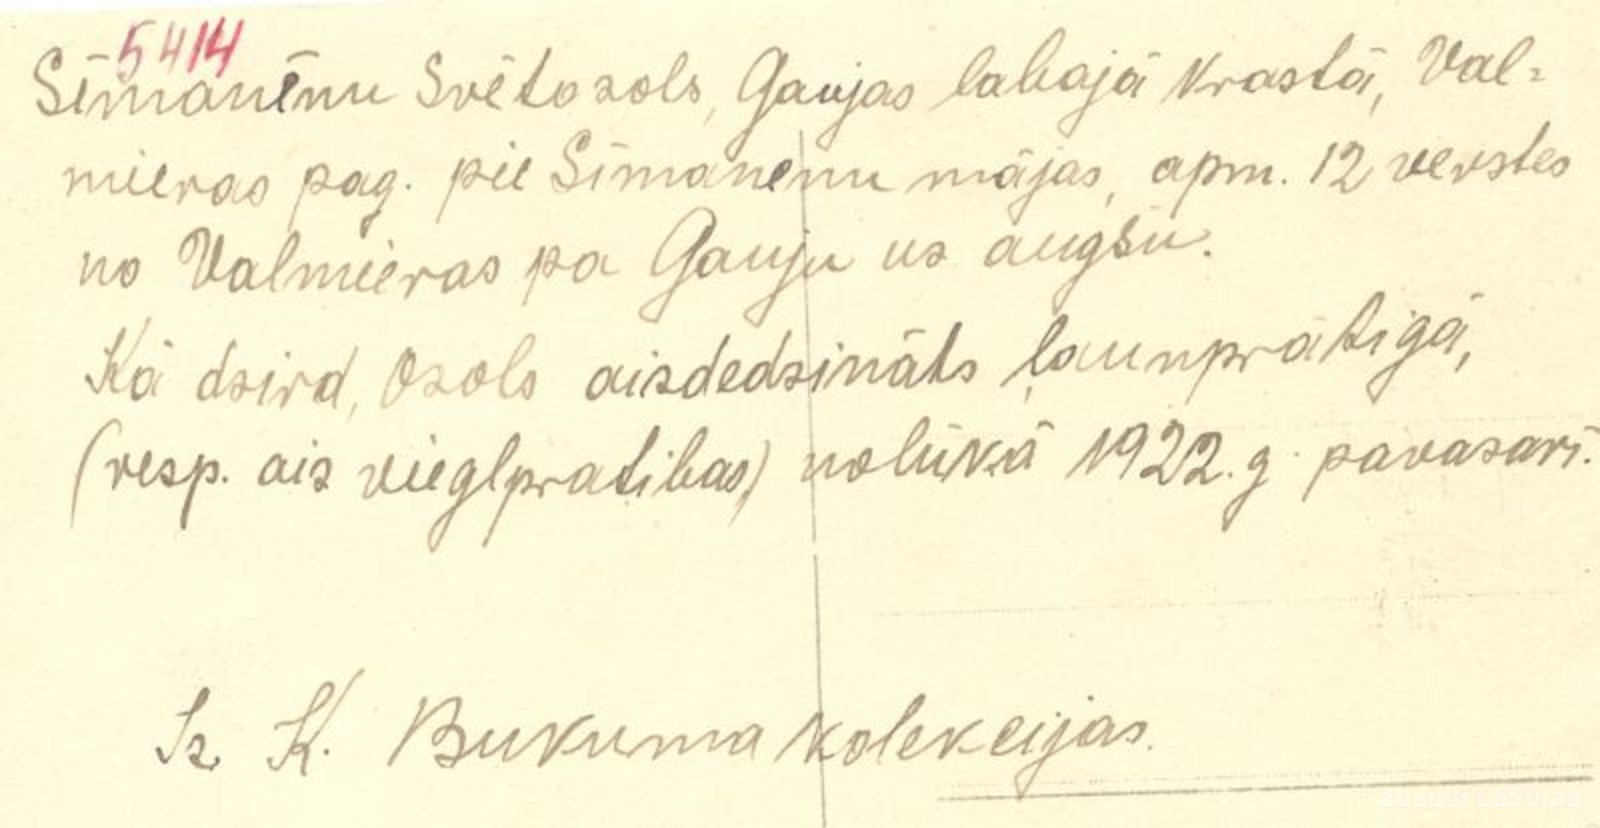 5414
Sīmanēnu Svētozols, Gaujas labajā krastā, Val=
mieras pag. pie Sīmanenu mājas, apm. 12 verstes
no Valmieras pa Gauju uz augšu.
Kā dzird, Ozols aizdedzināts ļaunprātigā,
(resp. aiz vieglpratibas) nolūkā 1922. g. pavasarī.
Iz K. Bukuma kolekcijas.